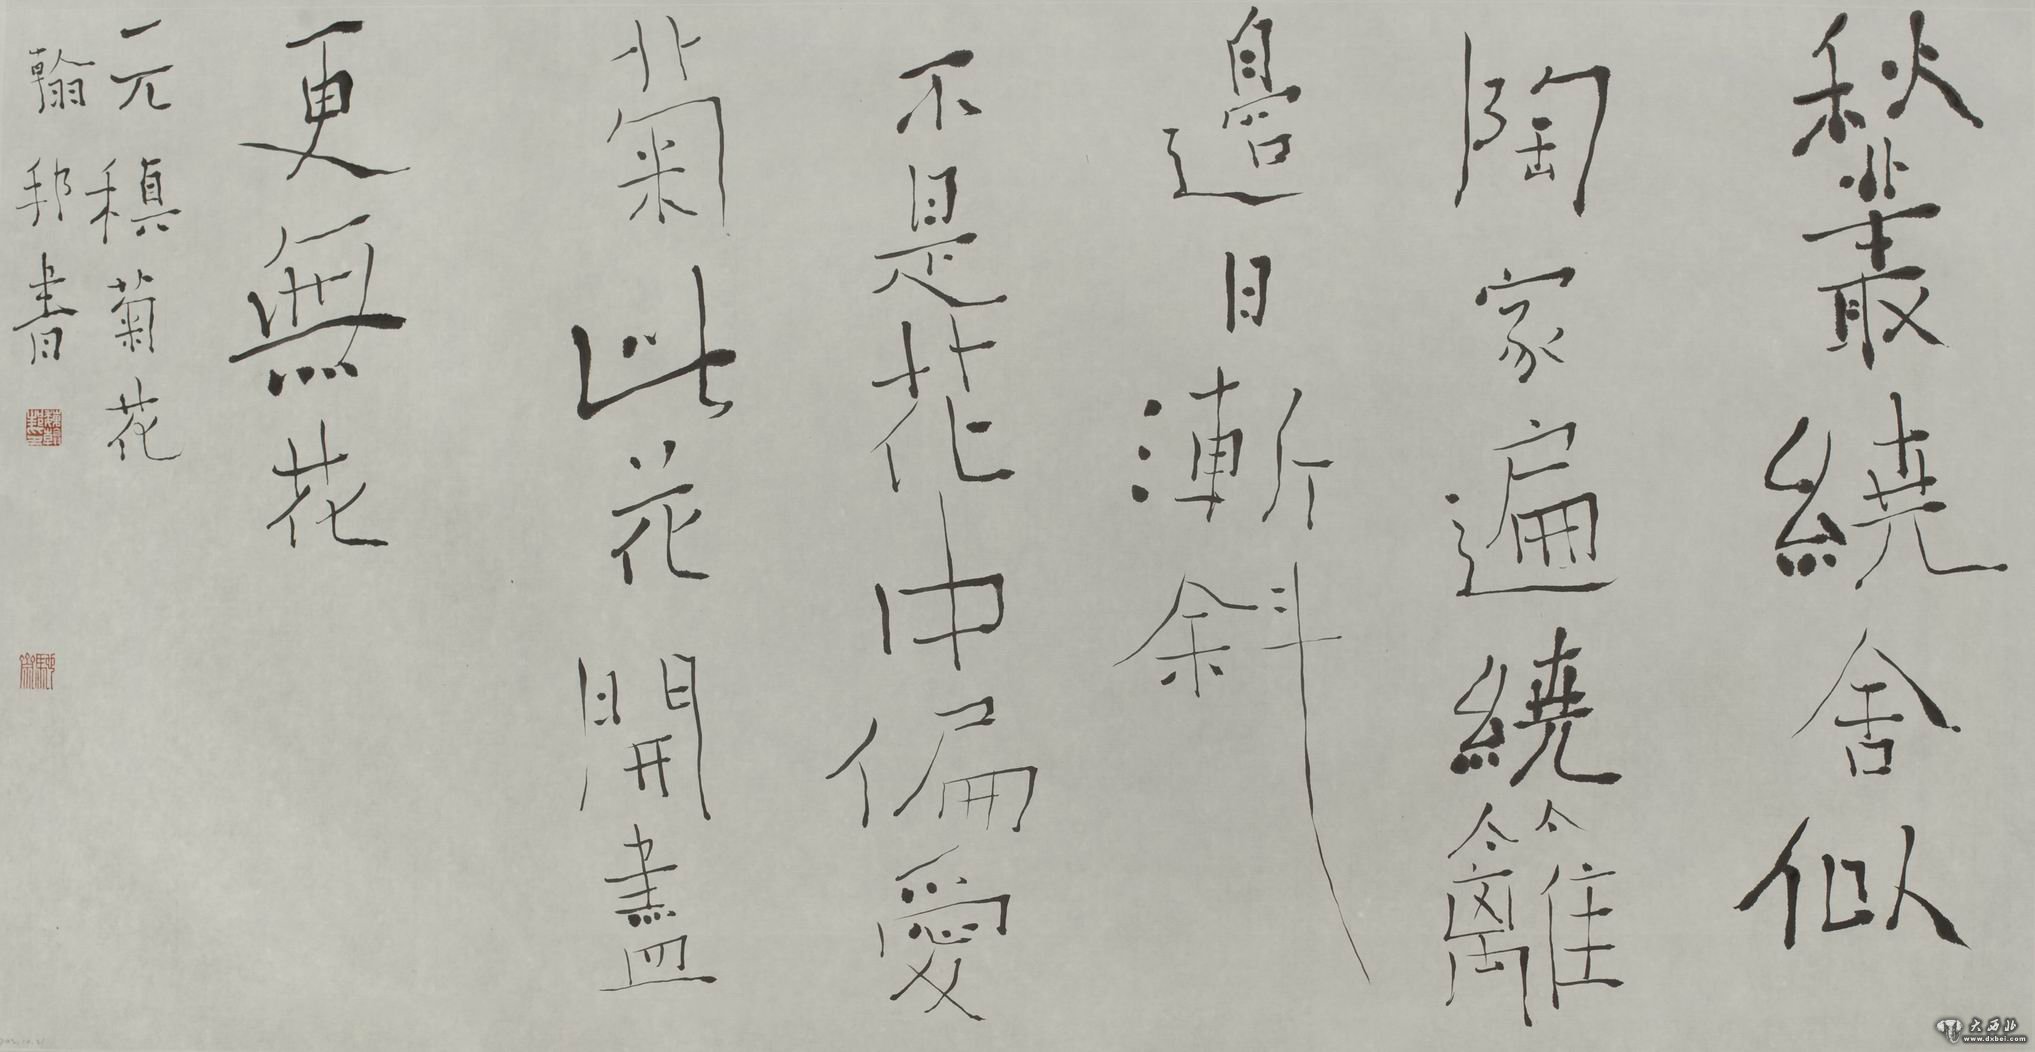 秋叢繞舍似
陶家遍繞籬
邊日漸斜
不是花中偏愛
菊此花開盡
更無花
元稹菊花
翰邦書
大西北
www.dxbei.com